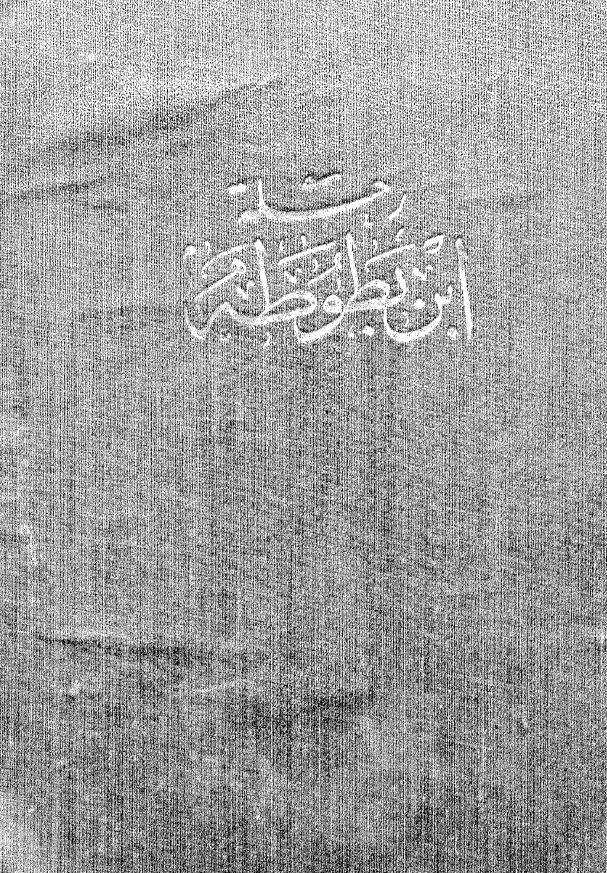 رحلة
ابن بطوطة